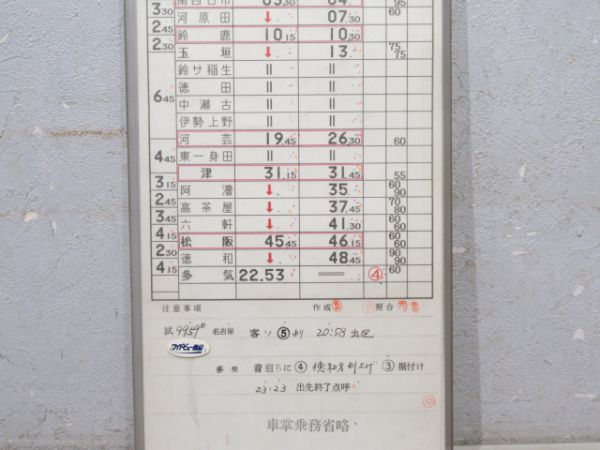 南四日市 05 30 04 95
3 30 河原田 ↓ 07 30 60
2 45 鈴鹿 10 15 10 30
2 30 玉垣 ↓ 13 75 75
鈴サ稲生 || ||
徳田 || ||
6 45 中瀬古 || ||
伊勢上野 || ||
河芸 19 45 26 30 60
4 45 東一身田 || ||
津 31 15 31 45 55
3 15 阿漕 ↓ 35 60 60
2 45 高茶屋 ↓ 37 45 70 80
3 45 六軒 ↓ 41 30 60
4 15 松阪 45 45 46 15 60 60
2 30 徳和 ↓ 48 45 90 90
4 15 多気 22.53 ― ④ 60
注意事項 作成 照合
試9959D 名古屋 客リ⑤より 20:58 出区
ワイドビュー南紀
多気 着后ちに④ ③据付け
23:23 出先終了点呼
車掌乗務省略